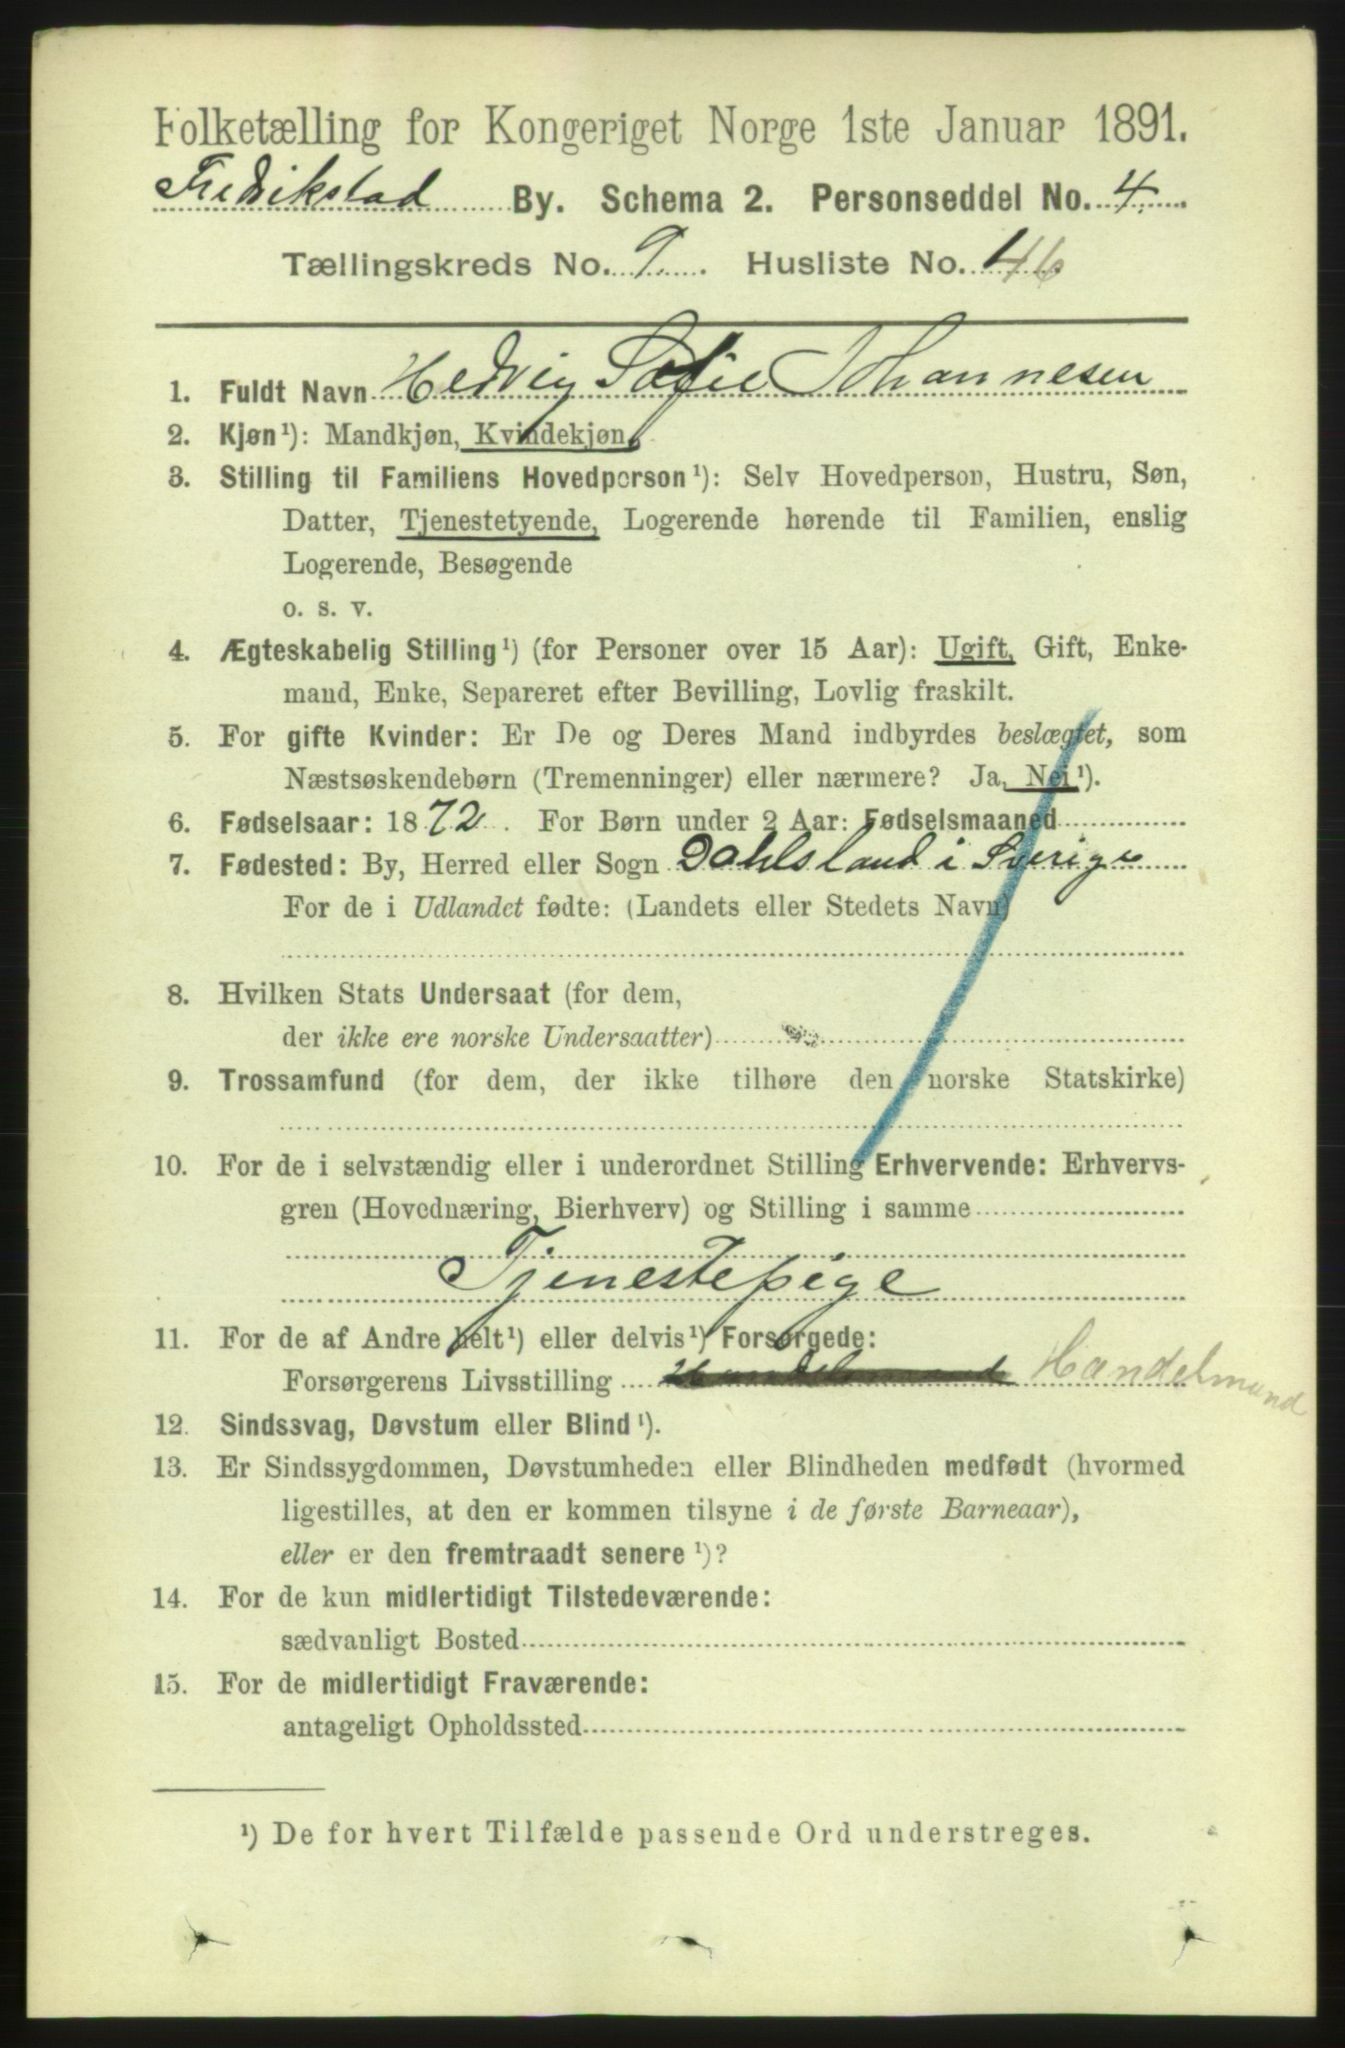 Folketælling for Kongeriget Norge 1ste Januar 1891.
Fredrikstad By. Schema 2. Personseddel No. 4.
Tællingskreds No. 9. Husliste No. 46
1. Fuldt Navn Hedvig Sofie Johannesen
2. Kjøn¹): Mandkjøn, Kvindekjøn.
3. Stilling til Familiens Hovedperson¹): Selv Hovedperson, Hustru, Søn,
Datter, Tjenestetyende, Logerende hørende til Familien, enslig
Logerende, Besøgende
o. s. v.
4. Ægteskabelig Stilling¹) (for Personer over 15 Aar): Ugift, Gift, Enke-
mand, Enke, Separeret efter Bevilling, Lovlig fraskilt.
5. For gifte Kvinder: Er De og Deres Mand indbyrdes beslægtet, som
Næstsøskendebørn (Tremenninger) eller nærmere? Ja, Nei¹).
6. Fødselsaar: 1872. For Børn under 2 Aar: Fødselsmaaned
7. Fødested: By, Herred eller Sogn Dahlsland i Sverige
For de i Udlandet fødte: (Landets eller Stedets Navn)
8. Hvilken Stats Undersaat (for dem,
der ikke ere norske Undersaatter)
9. Trossamfund (for dem, der ikke tilhøre den norske Statskirke)
10. For de i selvstændig eller i underordnet Stilling Erhvervende: Erhvervs-
gren (Hovednæring, Bierhverv) og Stilling i samme
Tjenestepige
11. For de af Andre helt¹) eller delvis¹) Forsørgede:
Forsørgerens Livsstilling Handelsmand Handelmand
12. Sindssvag, Døvstum eller Blind¹).
13. Er Sindssygdommen, Døvstumheden eller Blindheden medfødt (hvormed
ligestilles, at den er kommen tilsyne i de første Barneaar),
eller er den fremtraadt senere¹)?
14. For de kun midlertidigt Tilstedeværende:
sædvanligt Bosted
15. For de midlertidigt Fraværende:
antageligt Opholdssted
¹) De for hvert Tilfælde passende Ord understreges.